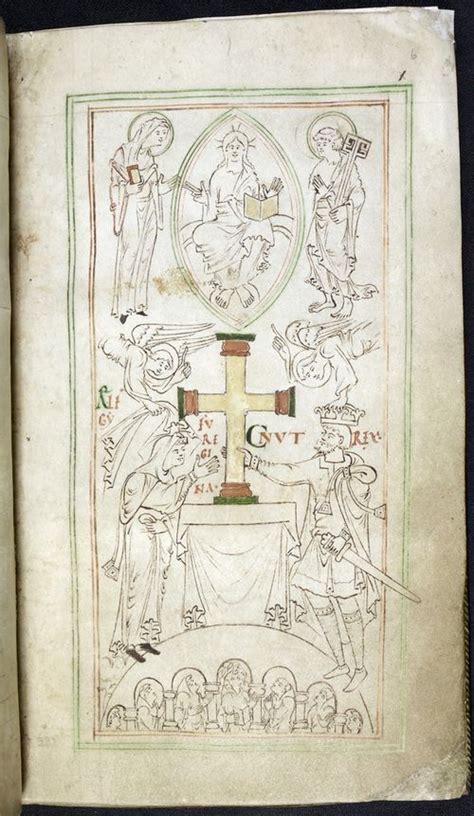 6
1
ÆLF
GY
FV
REGI
NA
CNVT REX